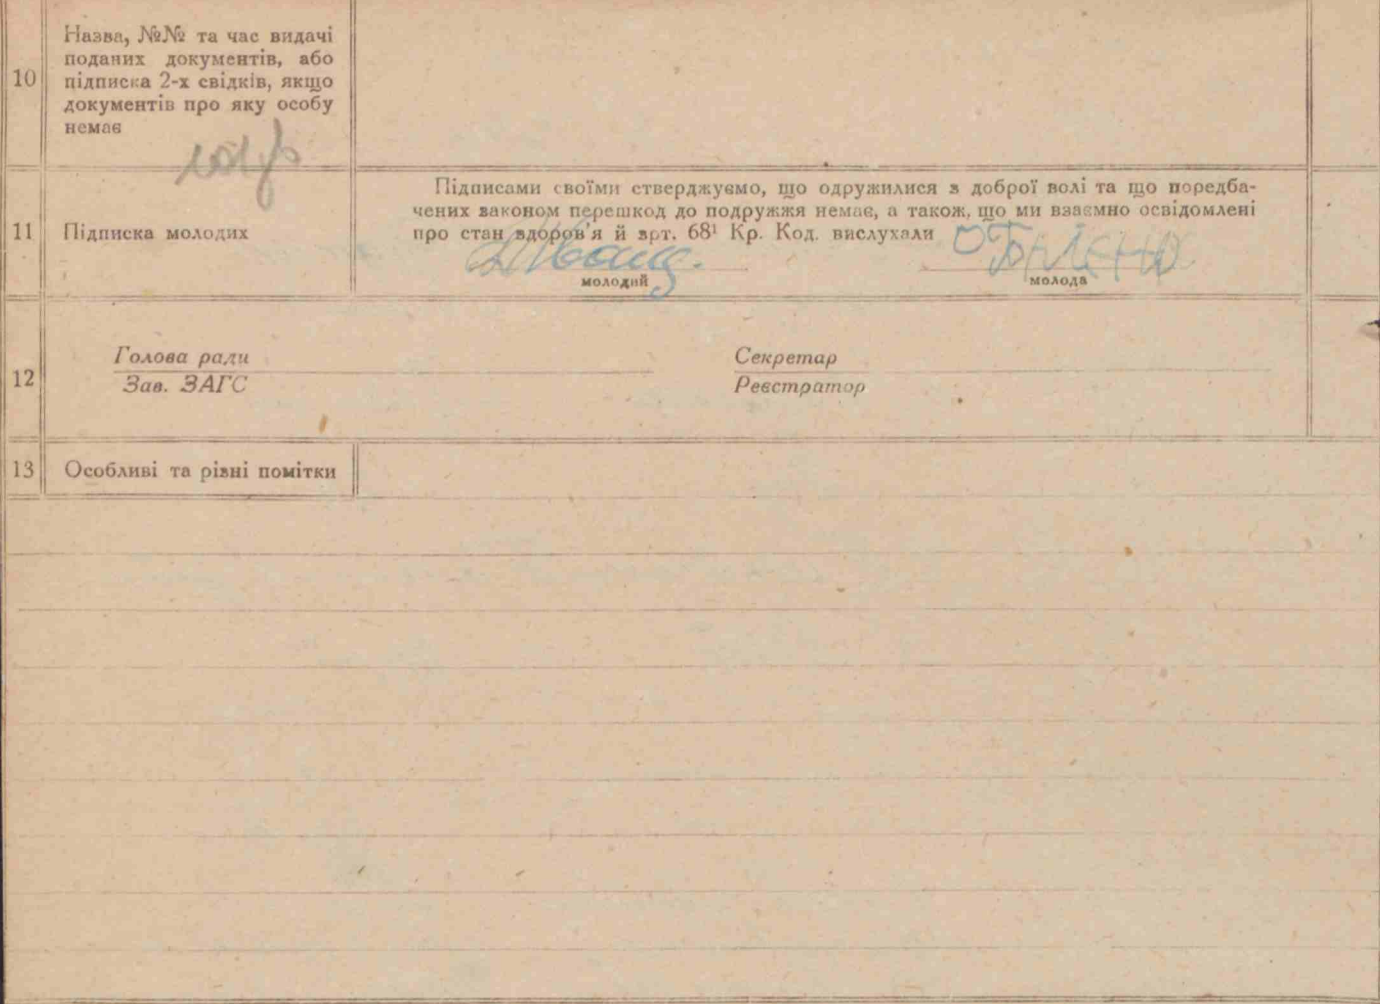 10
Назва, №№ та час видачі
поданих документів, або
підписка 2-х свідків, якщо
документів про яку особу
немає
11
Підписка молодих
Підписами своїми стверджуємо, що одружилися з доброї волі та що передба-
чених законом перешкод до подружжя немає, а також, що ми взаємно освідомлені
про стан здоров'я й арт. 68¹ Кр. Код. вислухали
молодий
молода
12
Голова ради
Зав. ЗАГС
Секретар
Реєстратор
13
Особливі та різні помітки